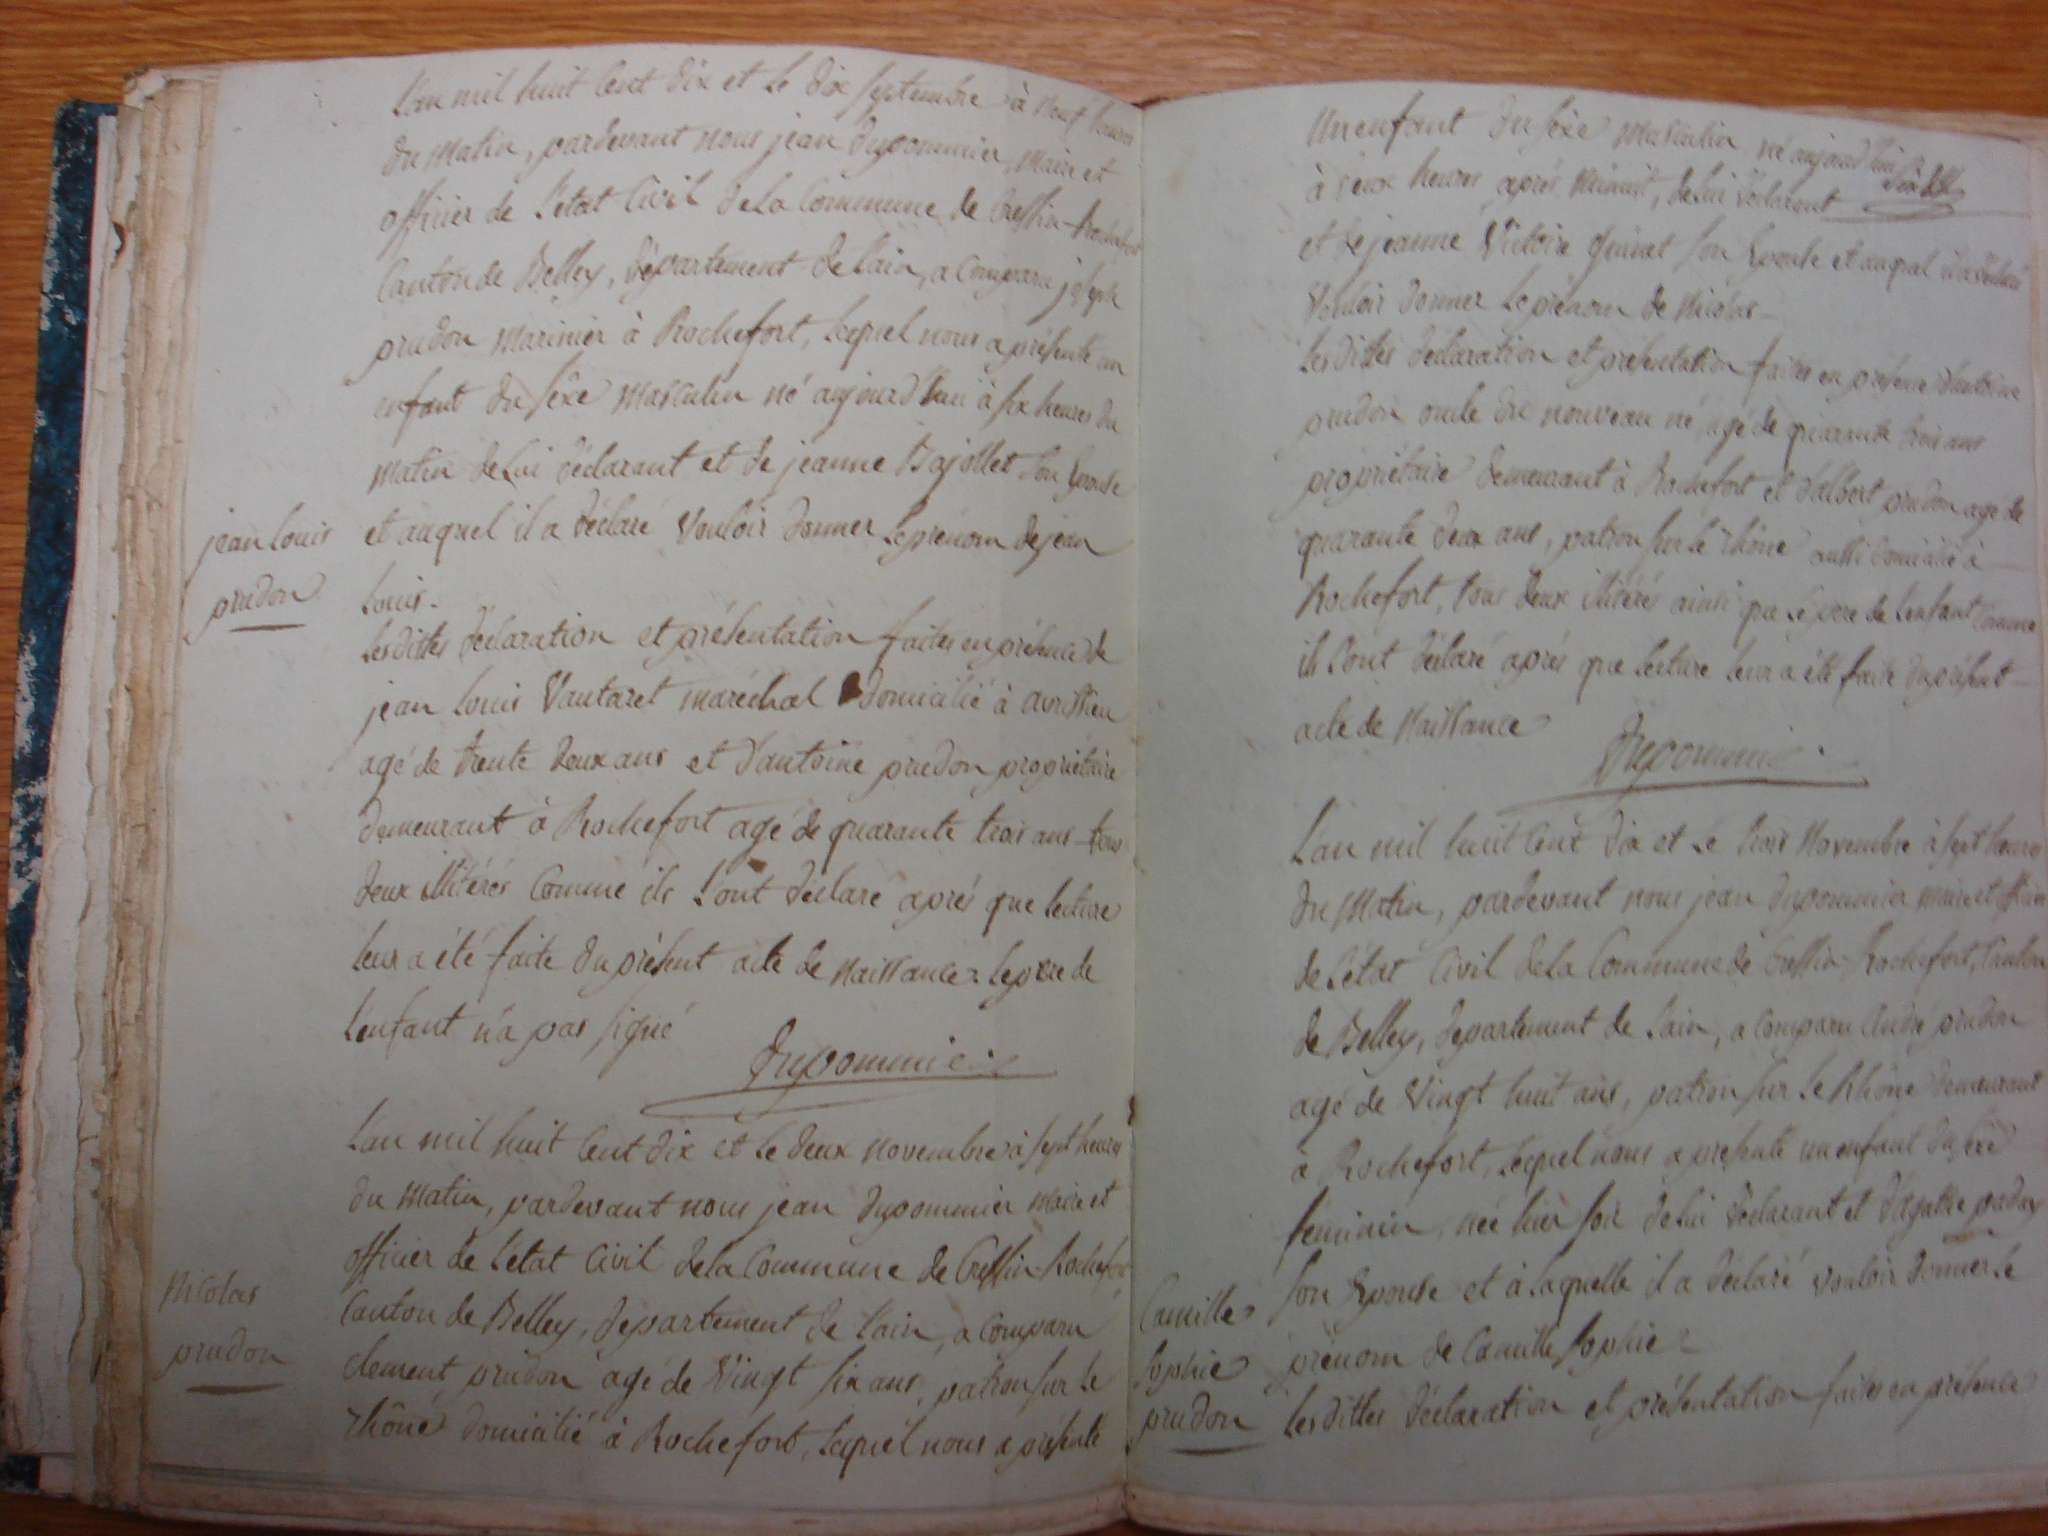 L'an mil huit Cent dix et le dix septembre à neuf heures
du matin, pardevant nous jean dupommier, maire et
officier de l'état Civil de la Commune de Cressin-Rochefort
Canton de Belley, département de l'ain, a Comparu joseph
prudon marinier à Rochefort, lequel nous a présenté un
enfant du séxe masculin né aujourd'hui à six heures du
matin de lui déclarant et de jeanne Bajollet son Epouse
et auquel il a déclaré vouloir donner le prénom de jean
Louis.
jean Louis
prudon
les dittes déclaration et présentation faites en présence de
jean Louis Vautaret maréchal domicilié à avrissieu
agé de trente deux ans et d'antoine prudon propriétaire
demeurant à Rochefort agé de quarante trois ans tous
deux illitérés Comme ils l'ont déclaré après que lecture
leur a été faite du présent acte de naissance le père de
l'enfant n'a pas signé
Dupommier
L'an mil huit Cent dix et le deux novembre à sept heures
du matin, pardevant nous jean dupommier maire et
officier de l'état Civil de la Commune de Cressin-Rochefort
Canton de Belley, département de l'ain, a Comparu
clement prudon agé de vingt six ans, patron sur le
rhône domicilié à Rochefort, lequel nous a présenté
Nicolas
prudon
un enfant du séxe masculin né aujourd'hui
à deux heures après minuit, de lui déclarant
et de jeanne Victoire quinet son Epouse et auquel il a déclaré
vouloir donner le prénom de Nicolas
les dittes déclaration et présentation faites en présence d'antoine
prudon oncle du nouveau né agé de quarante trois ans
propriétaire demeurant à Rochefort et d'albert prudon agé de
quarante deux ans, patron sur le rhône aussi domicilié à
Rochefort, tous deux illitérés ainsi que le père de l'enfant Comme
ils l'ont déclaré après que lecture leur a été faite du présent
acte de naissance
Dupommier
L'an mil huit Cent dix et le trois novembre à sept heures
du matin, pardevant nous jean dupommier maire et officier
de l'état Civil de la Commune de Cressin-Rochefort, Canton
de Belley, département de l'ain, a Comparu André prudon
agé de vingt huit ans, patron sur le Rhône demeurant
à Rochefort, lequel nous a présenté un enfant du séxe
feminin, née hier soir de lui déclarant et d'agathe
son Epouse et à laquelle il a déclaré vouloir donner le
prénom de Camille Sophie
Camille
Sophie
prudon
les dittes déclaration et présentation faites en présence